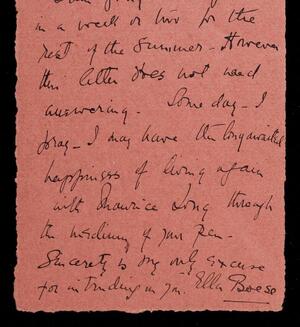 in a week or two for the
rest of the summer - However
this letter does not need
answering. Some day - I
pray - I may have the long awaited
happiness of living again
with Maurice Long through
the medium of your Pen -
Sincerety is my only excuse
for intruding on you. Ella Boese